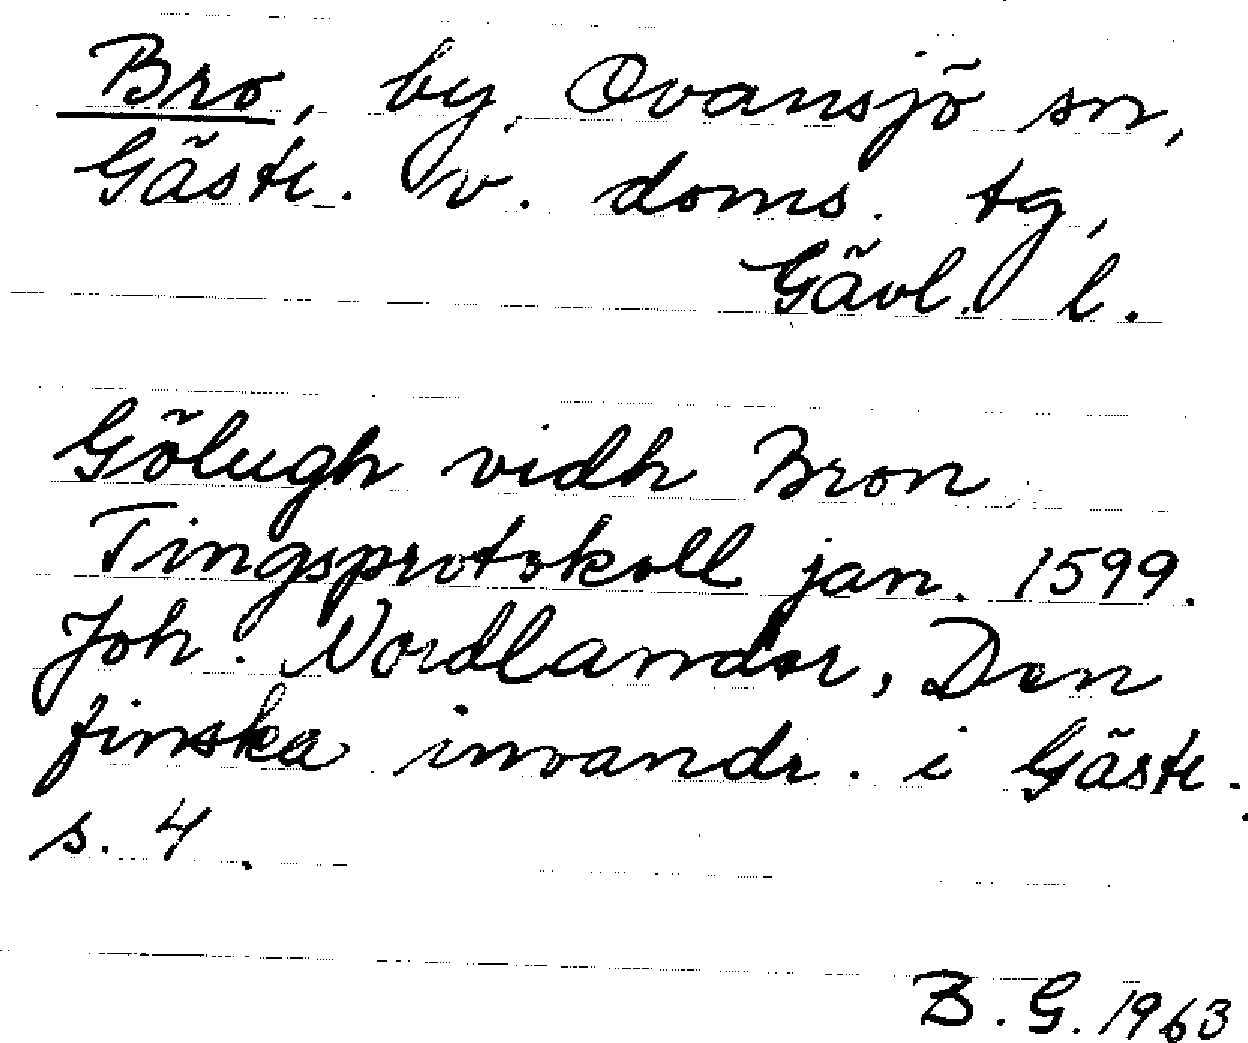 Bro, by, Ovansjö sn,
Gästr. v. doms. tg,
Gävl. l.
Gölugh vidh Bron
Tingsprotokoll jan. 1599.
Joh. Nordlander, Den
finska invandr. i Gästr.
s. 4.
B. G. 1963